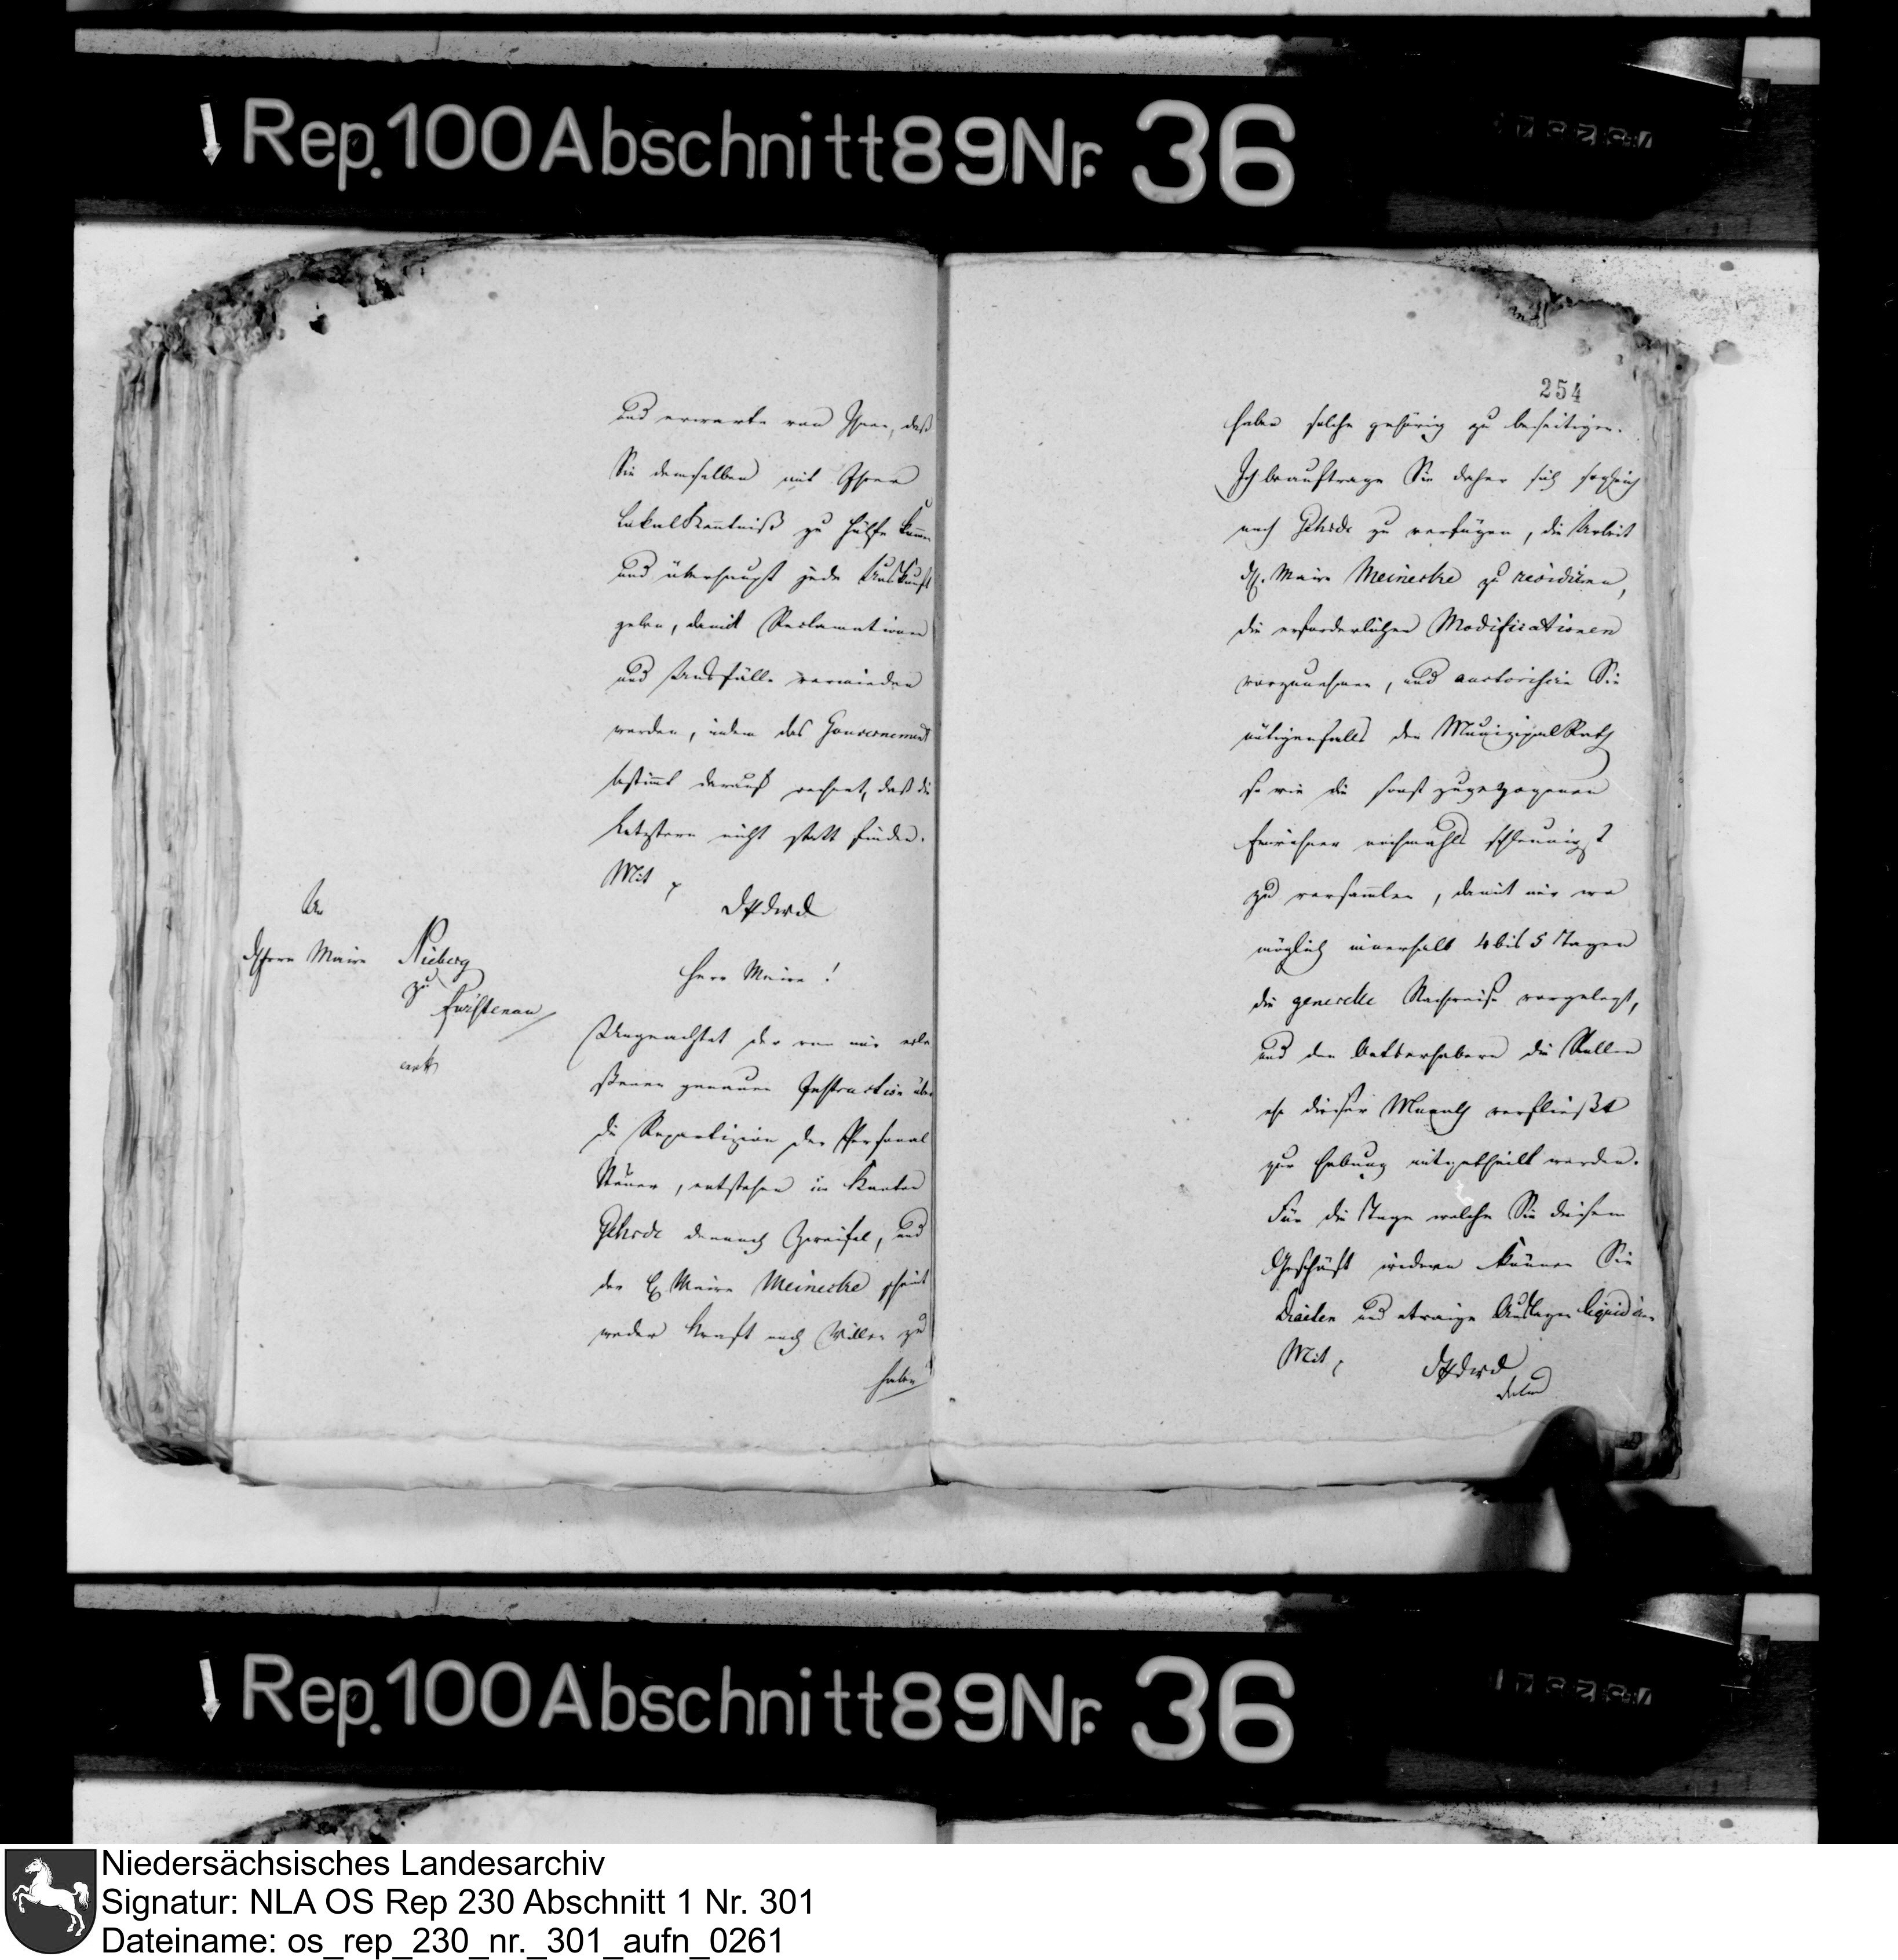 Rep. 100 Abschnitt 89 Nr. 36
und erwarte von Ihnen, daß
Sie demselben mit Ihrer
Lokalkenntniß zu Hülfe kom̄en
und überhaupt jede Auskunft
geben, damit Reclamationen
und Ausfälle vermieden
werden, indem das Gouvernement
bestim̄t darauf rechnet, daß die
Letztern nicht statt finden.
Mit
An
Herrn Maire Nieberg
zu
Fürstenau
Herr Maire!
Ungeachtet der von mir erla
ßenen genauen Instruction über
die Repartizion der Personal
Steuer, entstehen im Kanton
Gehrde dennoch Zweifel, und
der Ex Maire Meinecke scheint
weder Kraft noch Willen zu
haben
254
haben solche gehörig zu beseitigen.
Ich beauftrage Sie daher sich sogleich
nach Gehrde zu verfügen, die Arbeit
des H. Maire Meinecke zu revidiren,
die erforderlichen Modificationen
vorzunehmen, und auctorisire Sie
nötigenfalls den Munizipal Rath
so wie die sonst zugezogenen
Einwohner nochmahls schleunigst
zu versam̄len, damit mir wo
möglich innerhalb 4 bis 5 Tagen
die generelle Nachweise vorgelegt,
und den Unterhebern die Rollen
ehe dieser Monath verfließt
zur Hebung mitgetheilt werden.
Für die Tage welche Sie diesem
Geschäft widmen können Sie
Diäten und etwaige Auslagen liquidiren
Mit
Rep. 100 Abschnitt 89 Nr. 36
Niedersächsisches Landesarchiv
Signatur: NLA OS Rep 230 Abschnitt 1 Nr. 301
Dateiname: os_rep_230_nr._301_aufn_0261